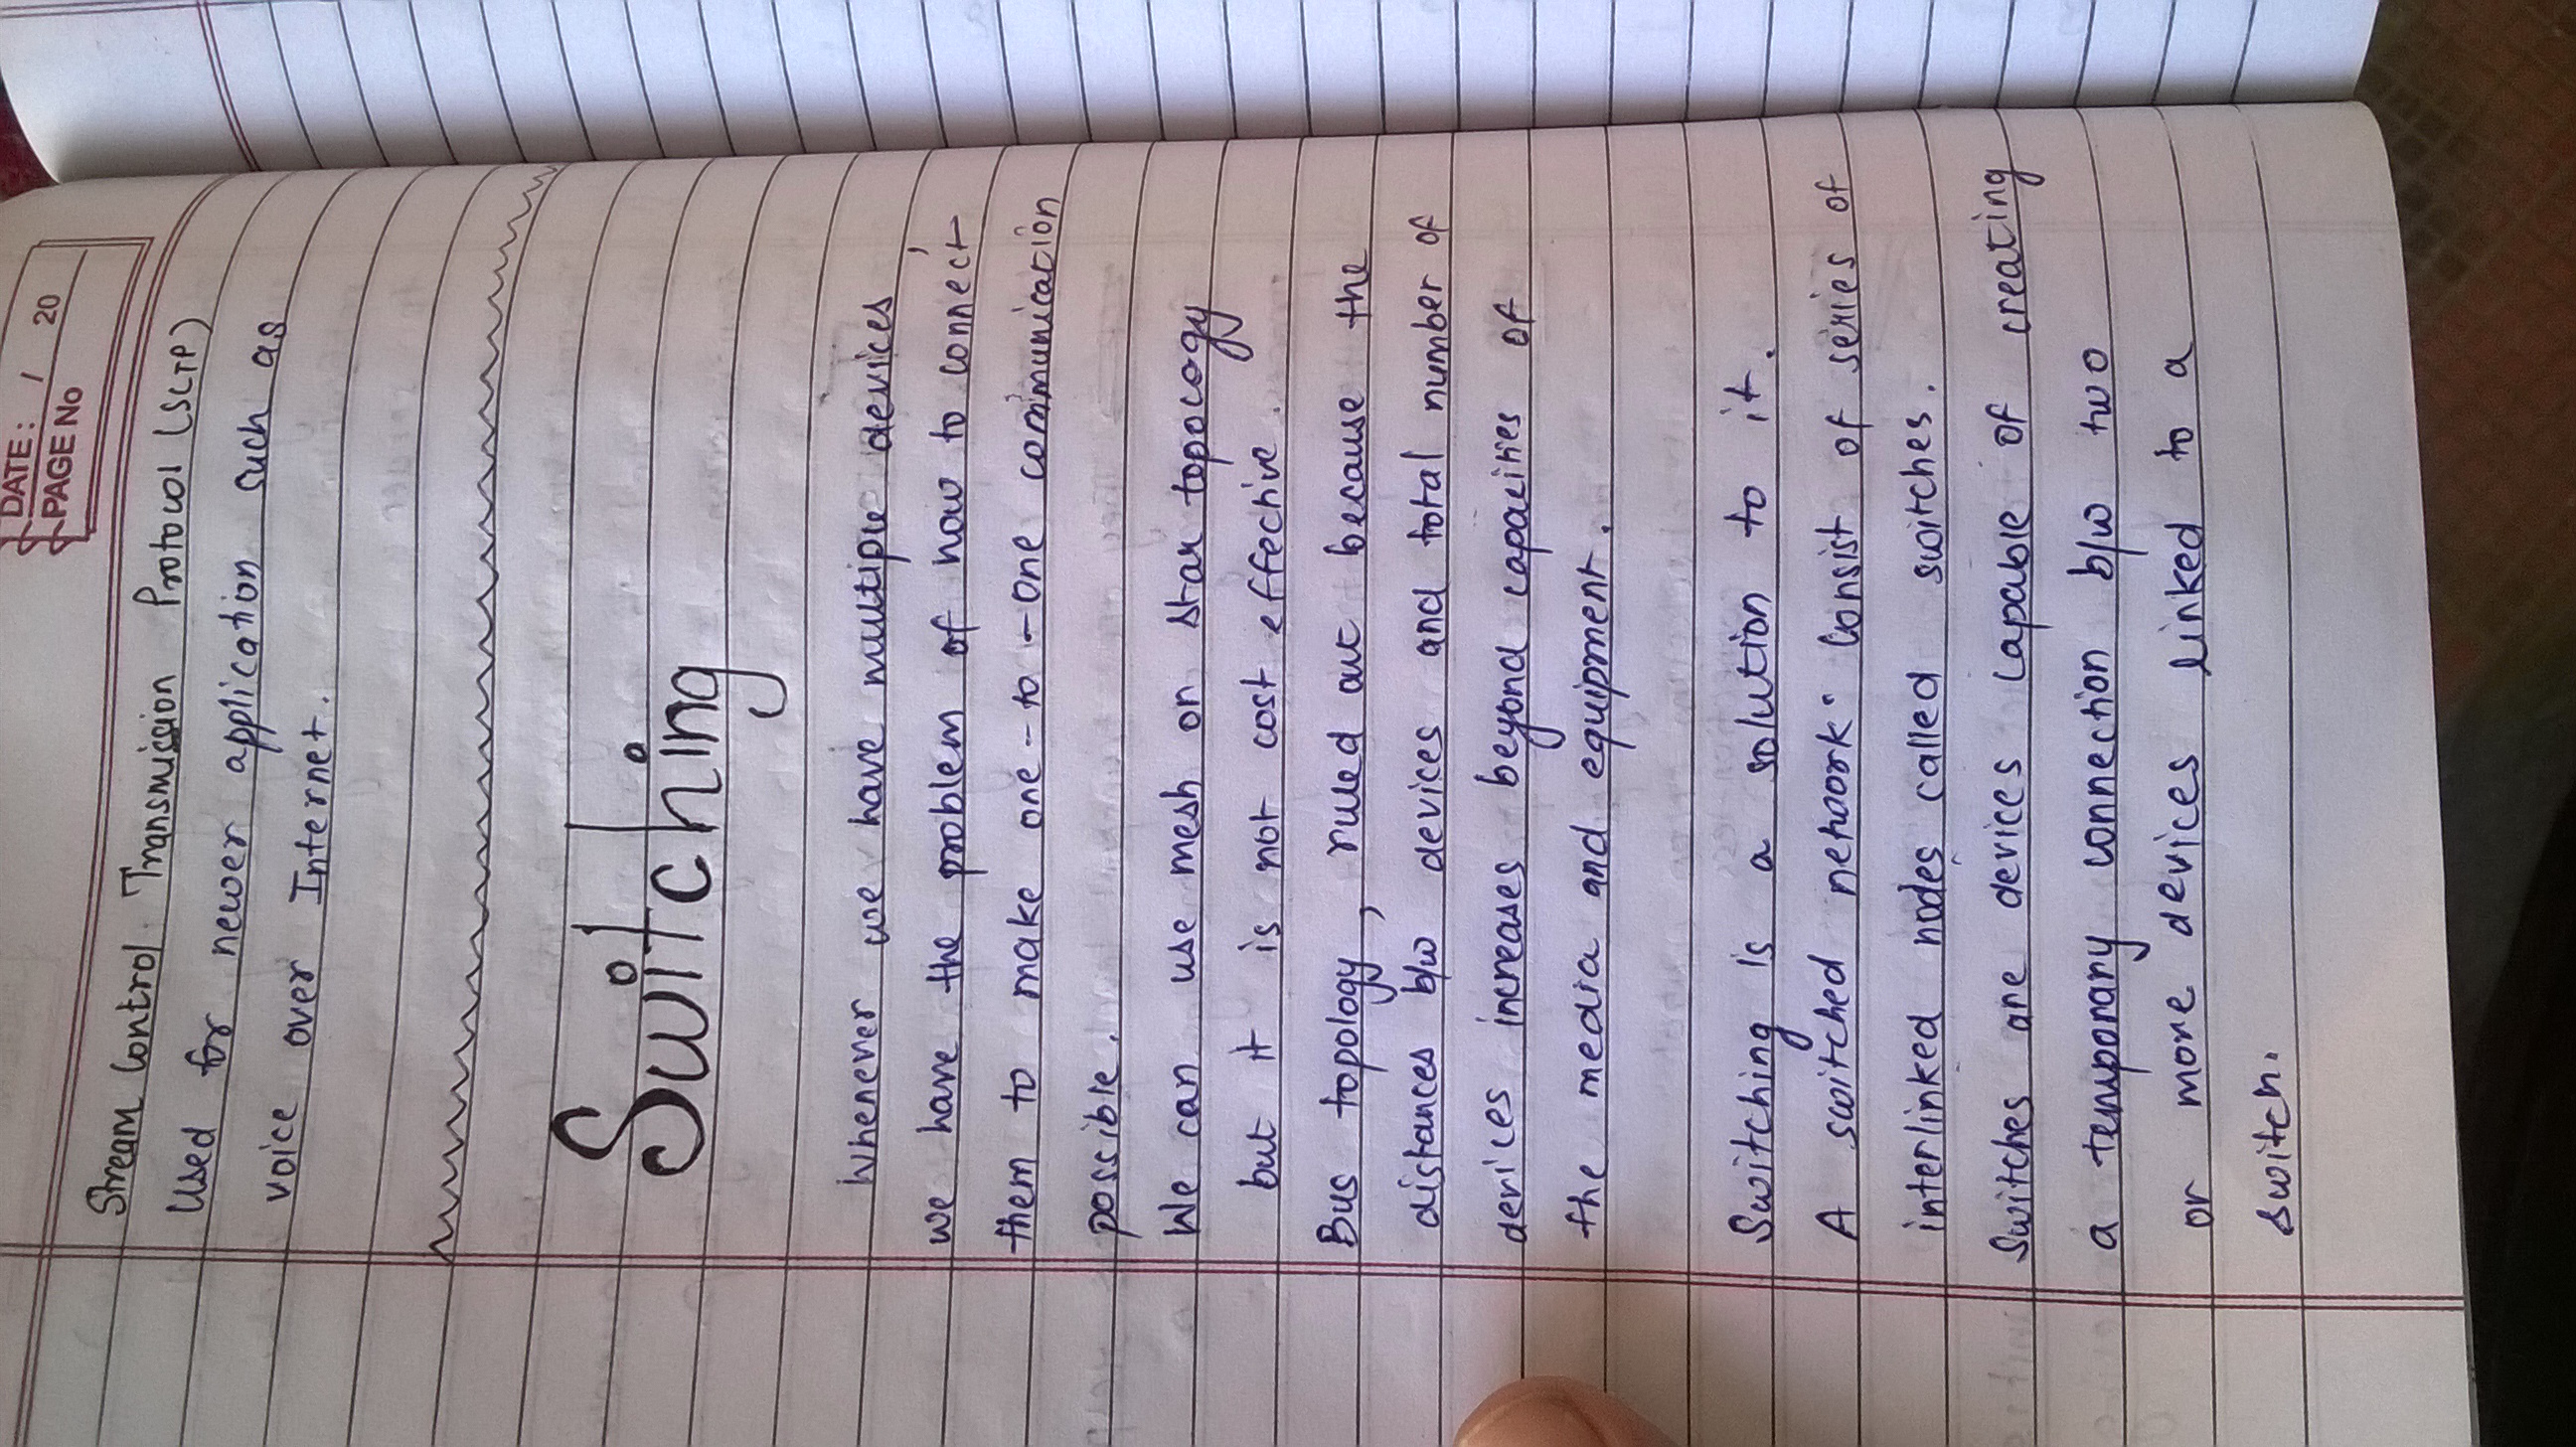 DATE: / 20
PAGE No
Stream Control Transmission Protocol (SCTP)
Used for newer application such as
voice over Internet.
Switching
Whenever we have multiple devices,
we have the problem of how to connect
them to make one-to-one communication
possible.
We can use mesh or star topology
but it is not cost effective.
Bus topology, ruled out because the
distances b/w devices and total number of
devices increases beyond capacities of
the media and equipment.
Switching is a solution to it.
A switched network consist of series of
interlinked nodes called switches.
Switches are devices capable of creating
a temporary connection b/w two
or more devices linked to a
switch.